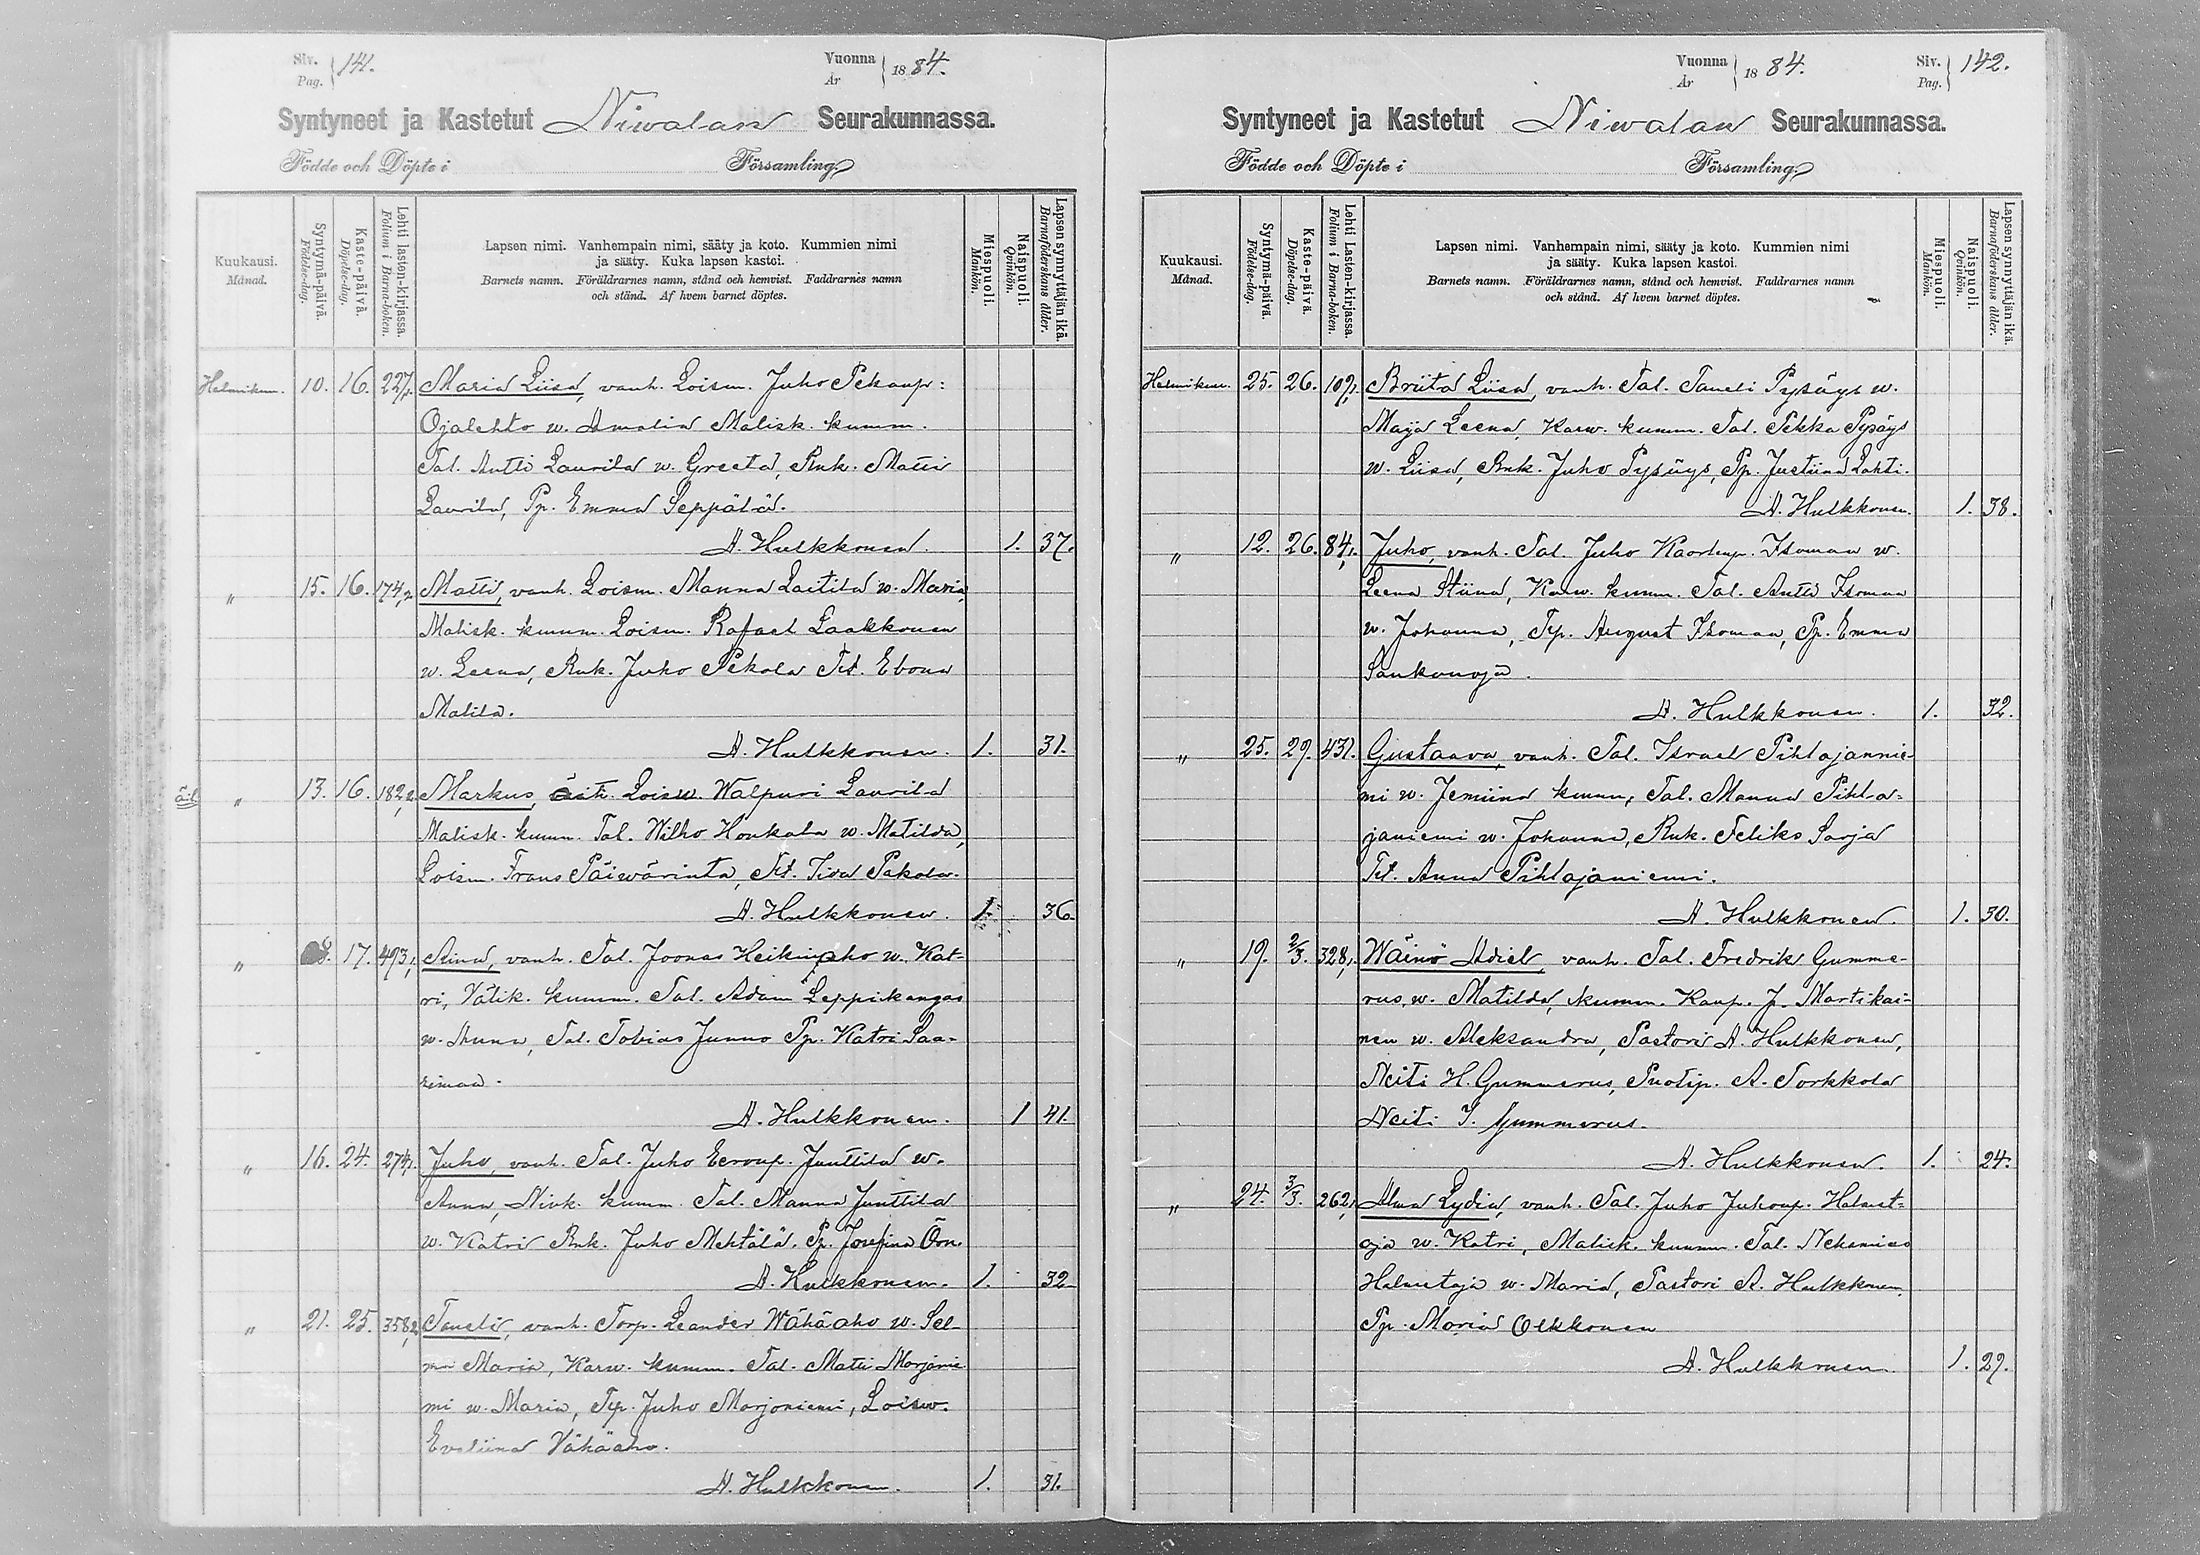 Siv. Pag. 141. Vuonna År 1884.
Syntyneet ja Kastetut Niwalan Seurakunnassa.
Födde och Döpte i Församling
Kuukausi. Månad.
Syntymä-päivä. Födelse-dag.
Kaste-päivä. Döpelse-dag.
Lehti lasten-kirjassa. Folium i Barna-boken.
Lapsen nimi. Vanhempain nimi, sääty ja koto. Kummien nimi
ja sääty. Kuka lapsen kastoi.
Barnets namn. Föräldrarnes namn, stånd och hemvist. Faddrarnes namn
och stånd. Af hvem barnet döptes.
Miespuoli. Mankön.
Naispuoli. Qvinkön.
Lapsen synnyttäjän ikä. Barnaföderskans ålder.
Helmikuu. 10. 16. 227,1. Maria Liisa, vanh. Loism. Juho Pekanp:
Ojalehto w. Amalia Malisk. kumm.
Tal. Antti Laurila w. Greeta, Rnk. Matti
Laurila, Pp. Emma Seppälä.
A. Hulkkonen. 1. 37.
" 15. 16. 174,2 Matti, vanh. Loism. Manna Laitila w. Maria,
Malisk. kumm. Loism. Rafael Laakkonen
w. Leena, Rnk. Juho Pekola Tit. Ebona
Malila.
A. Hulkkonen. 1. 31.
ä.l. " 13. 16. 182,2 Markus, äiti. Loisw. Walpuri Laurila
Malisk. kumm. Tal. Wilho Honkala w. Matilda,
Loism. Frans Päiwärinta, Tit. Tiva Pakola.
A. Hulkkonen. 1. 36.
" 8. 17. 493, Aina, vanh. Tal. Joonas Heikinaho w. Kat-
ri, Välik. kumm. Tal. Adam Leppikangas
w. Anna, Tal. Tobias Junno Pp. Katri Saa-
rimaa.
A. Hulkkonen. 1 41.
" 16. 24. 274,1. Juho, vanh. Tal. Juho Eeronp. Junttila w.
Anna, Nivk. kumm. Tal. Manna Junttila
w. Katri Rnk. Juho Mehtälä. Pp. Josefina Örn.
A. Hulkkonen. 1. 32
" 21. 25. 358,2 Taneli, vanh. Torp. Leander Wähäaho w. Sel-
ma Maria, Karw. kumm. Tal. Matti Marjanie
mi w. Maria, Tp. Juho Marjoniemi, Loisw.
Eveliina Vähäaho.
A. Hulkkonen. 1. 31.
Vuonna År 1884. Siv. Pag. 142.
Syntyneet ja Kastetut Niwalan Seurakunnassa.
Födde och Döpte i Församling
Kuukausi. Månad.
Syntymä-päivä. Födelse-dag.
Kaste-päivä. Döpelse-dag.
Lehti Lasten-kirjassa. Folium i Barna-boken.
Lapsen nimi. Vanhempain nimi, sääty ja koto. Kummien nimi
ja sääty. Kuka lapsen kastoi.
Barnets namn. Föräldrarnes namn, stånd och hemvist. Faddrarnes namn
och stånd. Af hvem barnet döptes.
Miespuoli. Mankön.
Naispuoli. Qvinkön.
Lapsen synnyttäjän ikä. Barnaföderskans ålder.
Helmikuu. 25. 26. 109,1. Briita Liisa, vanh. Tal. Taneli Pysäys w.
Maija Leena, Karw. kumm. Tal. Pekka Pysäys
w. Liisa, Rnk. Juho Pysäys, Pp. Justiina Lahti.
A. Hulkkonen. 1. 38.
" 12. 26. 84,1. Juho, vanh. Tal. Juho Kaarlenp. Isomaa w.
Leena Stiina, Karw. kumm. Tal. Antti Isomaa
w. Johanna, Tp. August Isomaa, Pp. Emma
Sankonoja.
A. Hulkkonen. 1. 32.
" 25. 29. 431. Gustaava, vanh. Tal. Israel Pihlajannie-
mi w. Jemiina kumm, Tal. Manna Pihla-
janiemi w. Johanna, Rnk. Feliks Sarja
Tit. Anna Pihlajaniemi.
A. Hulkkonen. 1. 30.
" 19. 2/3. 328,1. Wäinö Adiel, vanh. Tal. Fredrik Gumme-
rus, w. Matilda, kumm. Kaup. J. Martikai-
nen w. Aleksandra, Pastori A. Hulkkonen,
Neiti H. Gummerus, Puotip. A. Torkkola
Neiti I. Gummerus.
A. Hulkkonen. 1. 24.
" 24. 3/3. 262,1 Alma Lydia, vanh. Tal. Juho Juhonp. Helmet-
oja w. Katri, Malisk. kumm. Tal. Nehemias
Helmetoja w. Maria, Pastori A. Hulkkonen,
Pp. Maria Olkkonen
A. Hulkkonen. 1. 29.